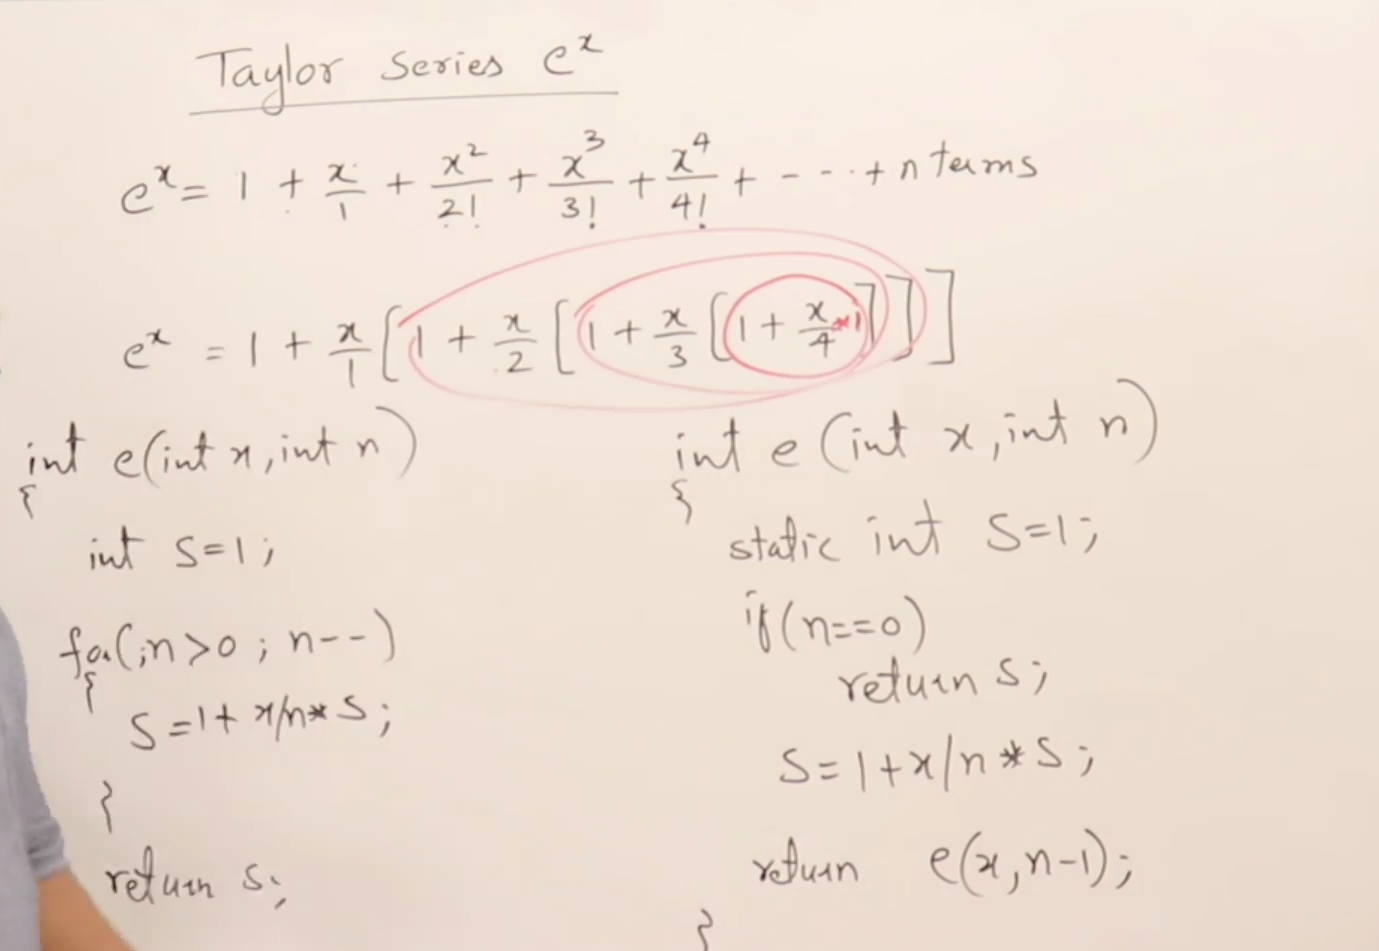 Taylor Series e^x
e^x = 1 + x/1 + x^2/2! + x^3/3! + x^4/4! + - - - .. + n terms
e^x = 1 + x/1 [1 + x/2 [1 + x/3 [1 + x/4 *1]]]]
int e(int x, int n)
{
int S=1;
for(;n>0; n--)
{
S=1+ x/n* S;
}
return s;
int e (int x, int n)
{
static int S=1;
if(n==0)
return s;
S=1+x/n*S;
return e(x,n-1);
}